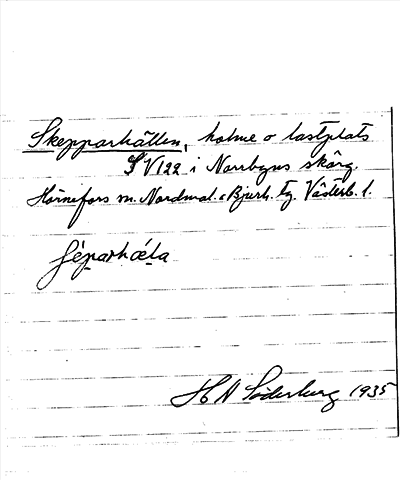 Skepparhällen, holme o lastplats
SV 122 i Norrbyns skärg.
Hörnefors sn. Nordmal. o Bjurh. tg. Västerb. l.
H N Söderburg 1935